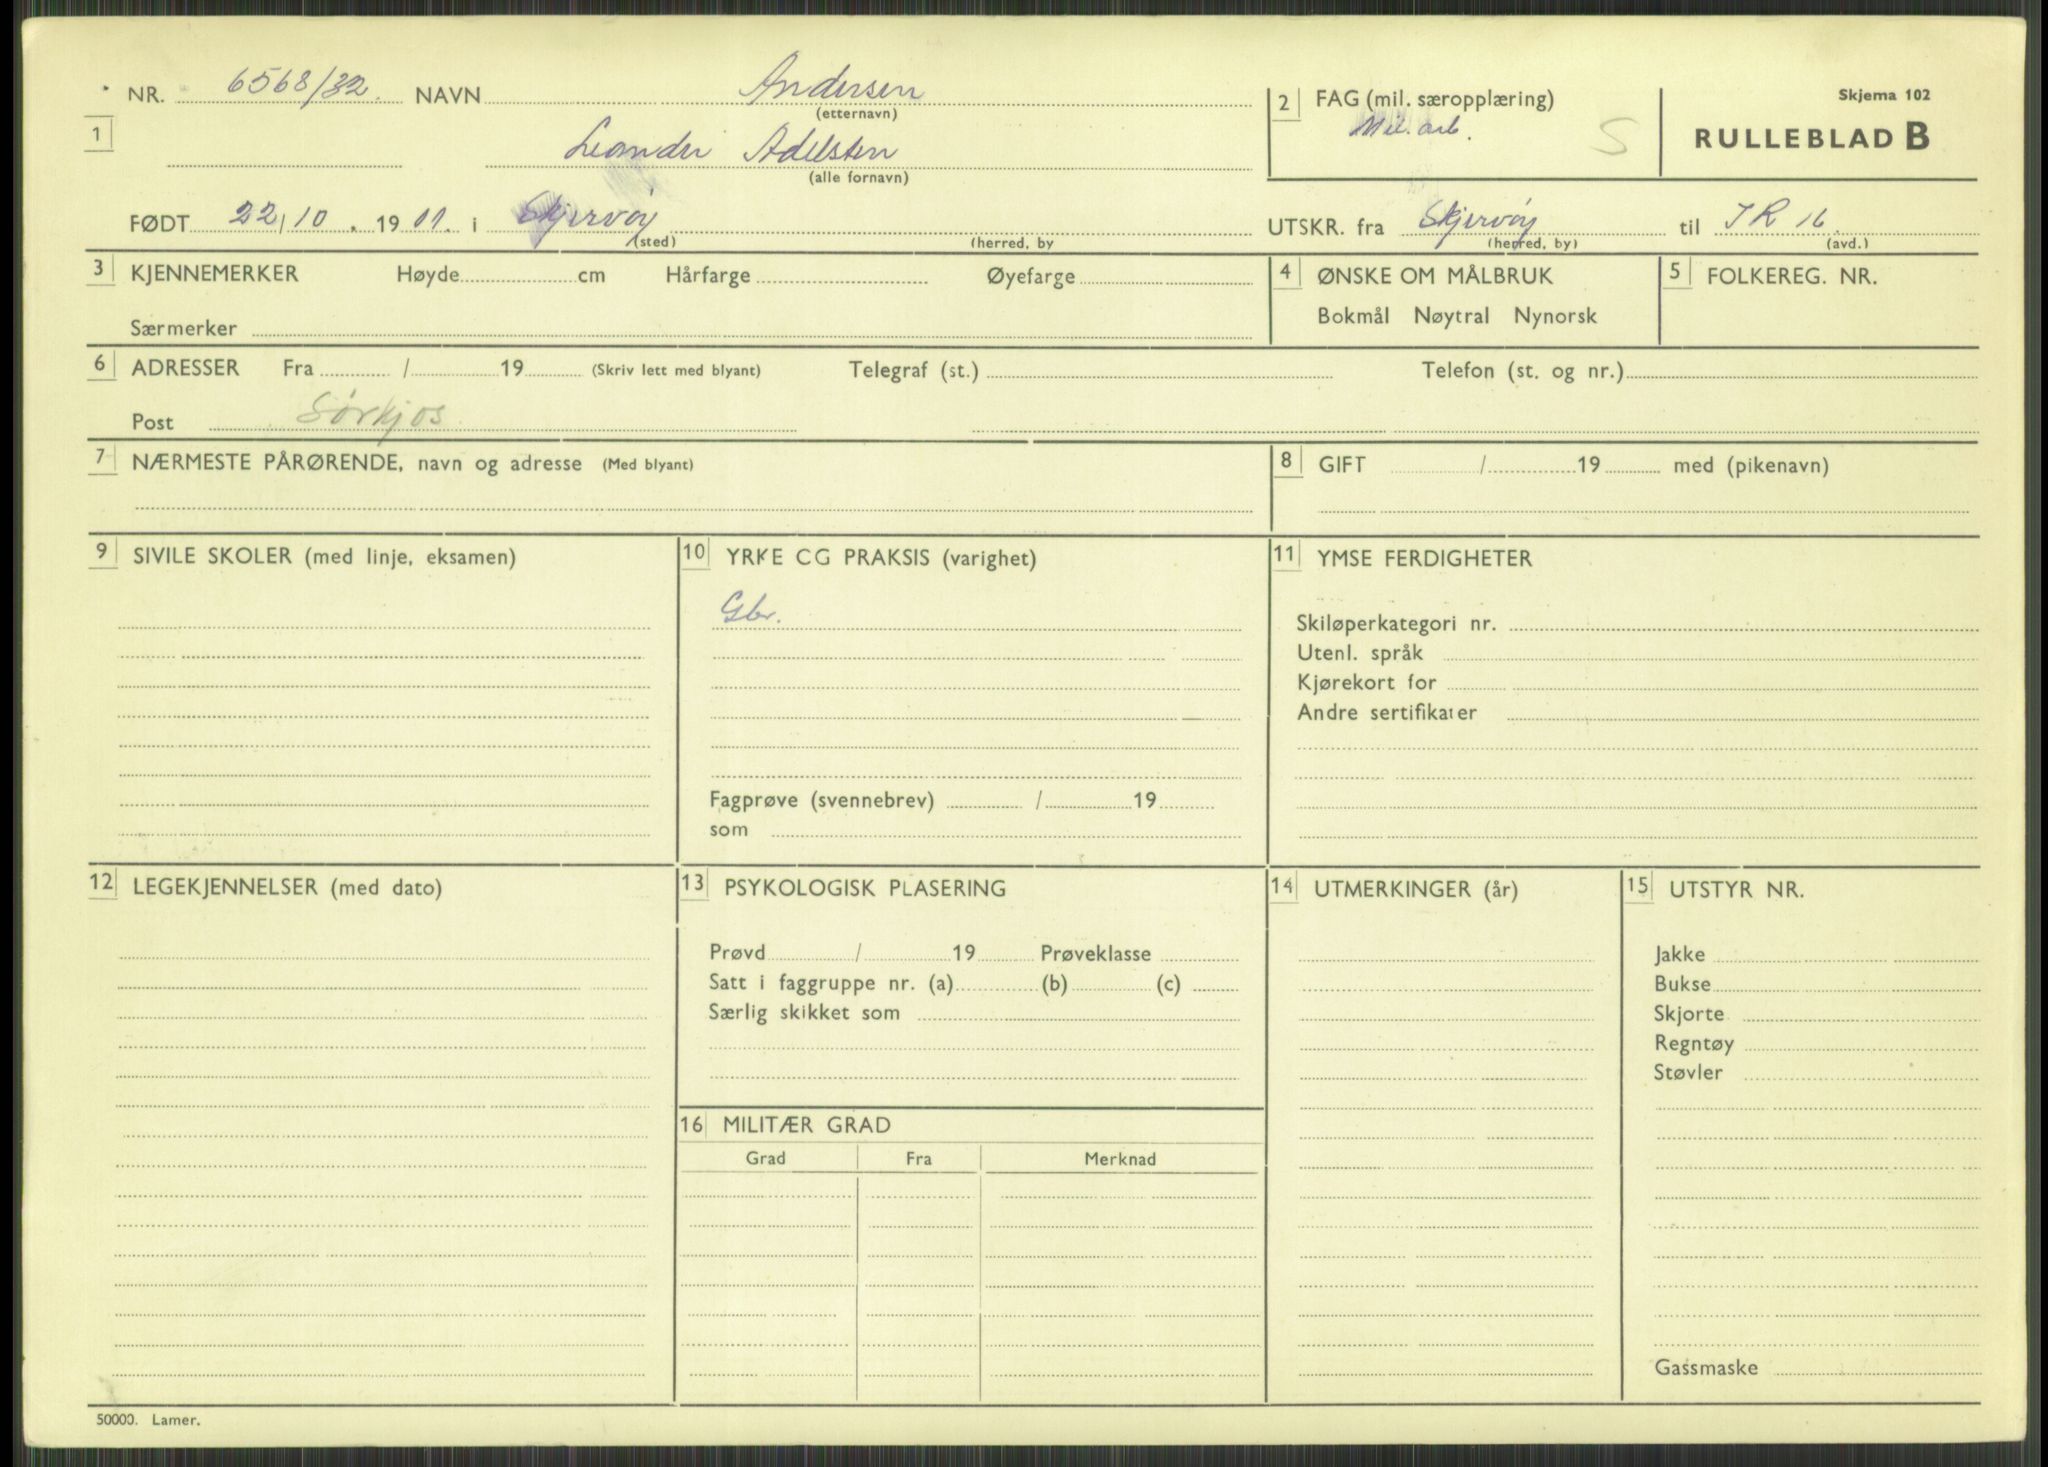 NR. 6568/32. NAVN Andersen
(etternavn)
1 Leander Adelsten
(alle fornavn)
FØDT 22/10. 1901. i Skjervøy
(sted) (herred, by
2 FAG (mil. særopplæring)
Mil. arb. S
Skjema 102
RULLEBLAD B
UTSKR. fra Skjervøy til IR 16.
(herred, by) (avd.)
3 KJENNEMERKER Høyde cm Hårfarge Øyefarge
Særmerker
4 ØNSKE OM MÅLBRUK
Bokmål Nøytral Nynorsk
5 FOLKEREG. NR.
6 ADRESSER Fra / 19 (Skriv lett med blyant) Telegraf (st.) Telefon (st. og nr.)
Post Sørkjos
7 NÆRMESTE PÅRØRENDE, navn og adresse (Med blyant)
8 GIFT / 19 med (pikenavn)
9 SIVILE SKOLER (med linje, eksamen)
10 YRKE CG PRAKSIS (varighet)
Gbr.
Fagprøve (svennebrev) / 19
som
11 YMSE FERDIGHETER
Skiløperkategori nr.
Utenl. språk
Kjørekort for
Andre sertifikater
12 LEGEKJENNELSER (med dato)
13 PSYKOLOGISK PLASERING
Prøvd / 19 Prøveklasse
Satt i faggruppe nr. (a) (b) (c)
Særlig skikket som
14 UTMERKINGER (år)
15 UTSTYR NR.
Jakke
Bukse
Skjorte
Regntøy
Støvler
Gassmaske
16 MILITÆR GRAD
Grad Fra Merknad
50000. Lamer.